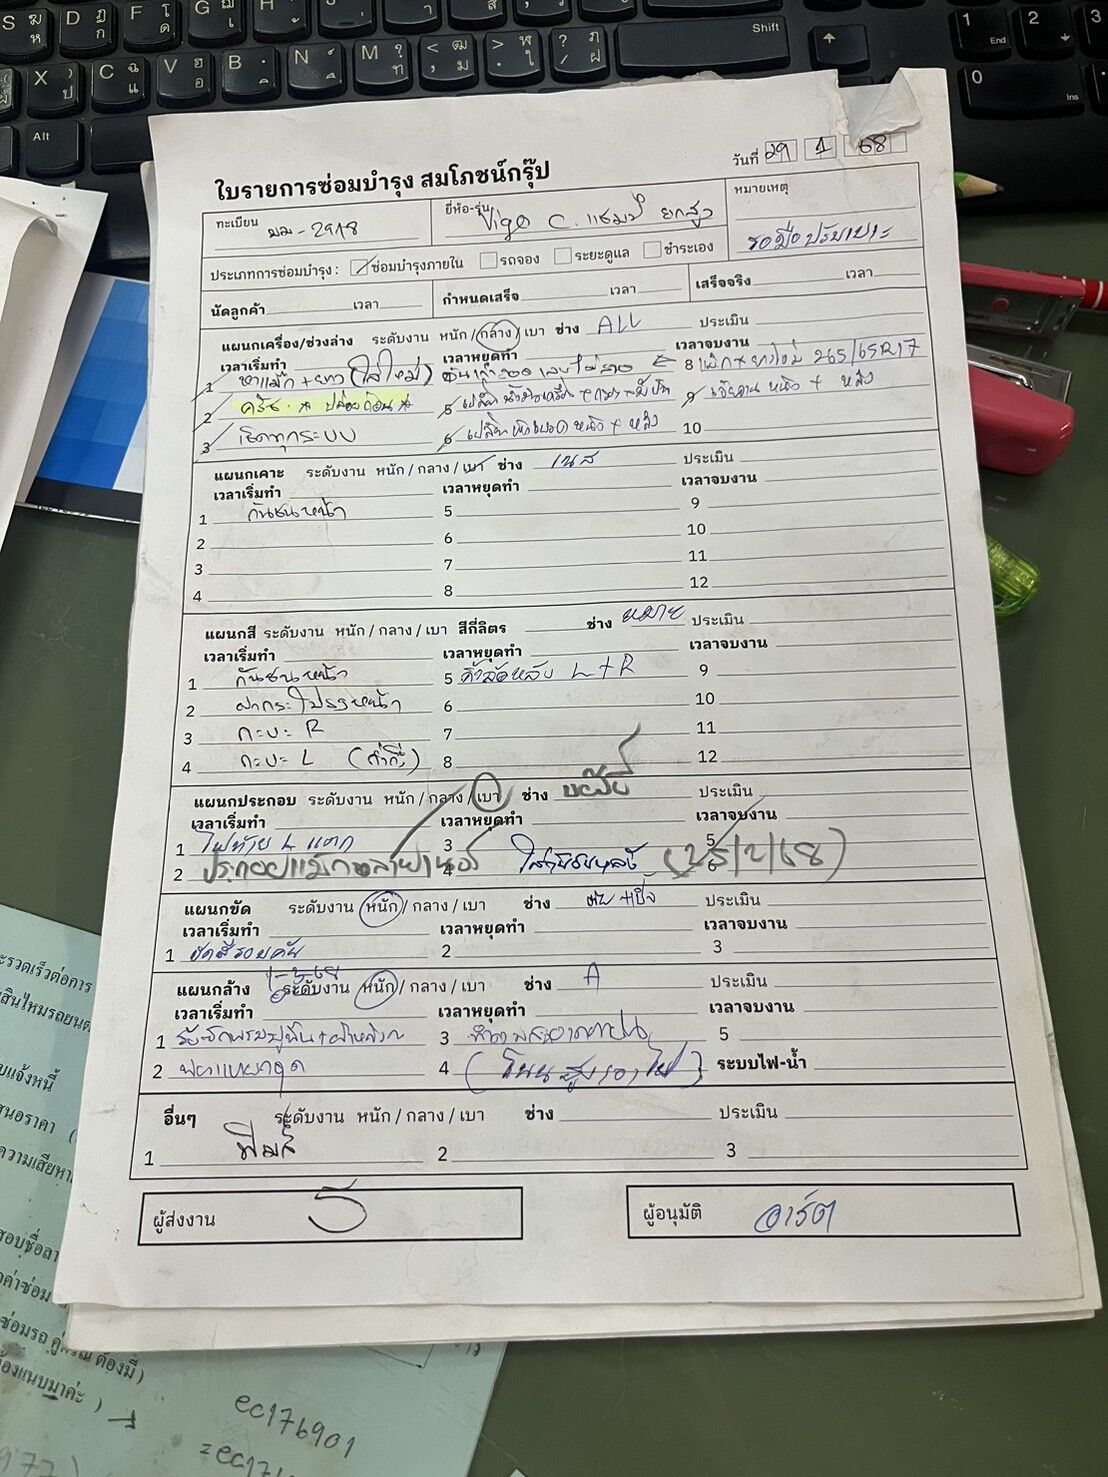 ใบรายการซ่อมบำรุง สมโภชน์กรุ๊ป
วันที่ 29 1 68
ทะเบียน ฆฆ-2918
ยี่ห้อ-รุ่น Vigo C. แชมป์ ยกสูง
หมายเหตุ
รอมือปรับเบาะ
ประเภทการซ่อมบำรุง : ซ่อมบำรุงภายใน รถจอง ระยะดูแล ชำระเอง
นัดลูกค้า เวลา กำหนดเสร็จ เวลา เสร็จจริง เวลา
แผนกเครื่อง/ช่วงล่าง ระดับงาน หนัก / กลาง / เบา ช่าง ALL ประเมิน
เวลาเริ่มทำ เวลาหยุดทำ เวลาจบงาน
1 หาแม็ก + ยาง (ใส่ใหม่)
8 แม็ก + ยางใหม่ 265/65R17
2 ครัช * ปล่อยก่อน *
5 เปลี่ยนน้ำมันเครื่อง + กรอง
9 หน้า + หลัง
3 เช็คทุกระบบ
6 เปลี่ยนผ้าเบรค หน้า + หลัง
10
แผนกเคาะ ระดับงาน หนัก / กลาง / เบา ช่าง เนส ประเมิน
เวลาเริ่มทำ เวลาหยุดทำ เวลาจบงาน
1 กันชนหน้า 5 9
2 6 10
3 7 11
4 8 12
แผนกสี ระดับงาน หนัก / กลาง / เบา สีกี่ลิตร ช่าง หมาย ประเมิน
เวลาเริ่มทำ เวลาหยุดทำ เวลาจบงาน
1 กันชนหน้า 5 L + R 9
2 ฝากระโปรงหน้า 6 10
3 กะบะ R 7 11
4 กะบะ L 8 12
แผนกประกอบ ระดับงาน หนัก / กลาง / เบา ช่าง ประเมิน
เวลาเริ่มทำ เวลาหยุดทำ เวลาจบงาน
1 ไฟท้าย L แตก 3 5
2 4 (25/2/68)
แผนกขัด ระดับงาน หนัก / กลาง / เบา ช่าง ประเมิน
เวลาเริ่มทำ เวลาหยุดทำ เวลาจบงาน
1 ขัดสีรอบคัน 2 3
แผนกล้าง ระดับงาน หนัก / กลาง / เบา ช่าง A ประเมิน
เวลาเริ่มทำ เวลาหยุดทำ เวลาจบงาน
1 3 5
2 4 ระบบไฟ-น้ำ
อื่นๆ ระดับงาน หนัก / กลาง / เบา ช่าง ประเมิน
1 ฟีมล์ 2 3
ผู้ส่งงาน
ผู้อนุมัติ อาร์ต
ec176901